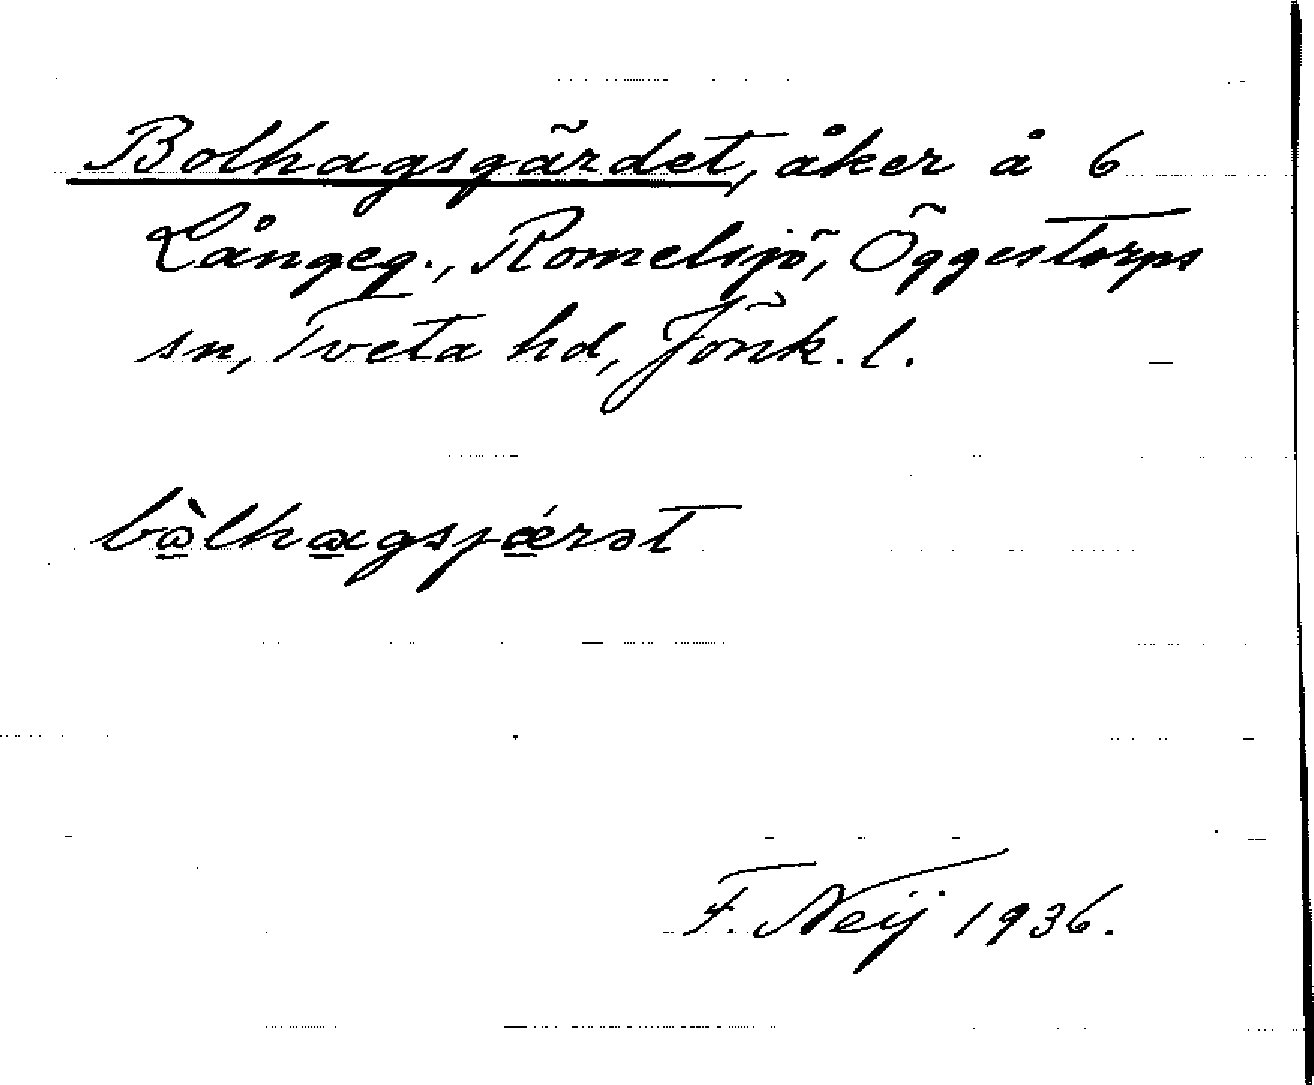 Bolhagsgärdet, åker å 6
Långeg., Romelsjö, Öggestorps
sn, Tveta hd, Jönk. l.
bòlhagsjǽrət
F. Neij 1936.